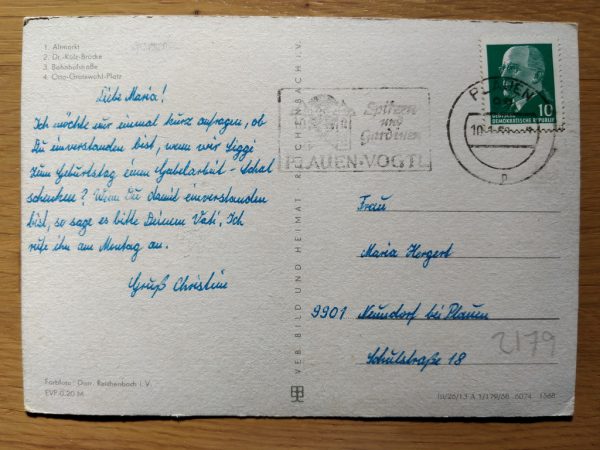 1. Altmarkt
2. Dr.-Külz-Brücke
3. Bahnhofstraße
4. Otto-Grotewohl-Platz
Liebe Maria!
Ich möchte nur einmal kurz anfragen, ob
Du einverstanden bist, wenn wir Siggi
zum Geburtstag einen Gabelarbeit-Schal
schenken? Wenn Du damit einverstanden
bist, so sage es bitte Deinem Vati, Ich
rufe ihn am Montag an.
Gruß Christine
Farbfoto: Darr, Reichenbach i. V.
EVP 0,20 M
VEB BILD UND HEIMAT REICHENBACH I. V.
Spitzen
und
Gardinen
PLAUEN·VOGTL
PLAUEN
10
DEUTSCHE
DEMOKRATISCHE REPUBLIK
Frau
Maria Hergert
9901 Neundorf bei Plauen
Schulstraße 18
2179
III/26/13 A 1/179/68 6074 1568